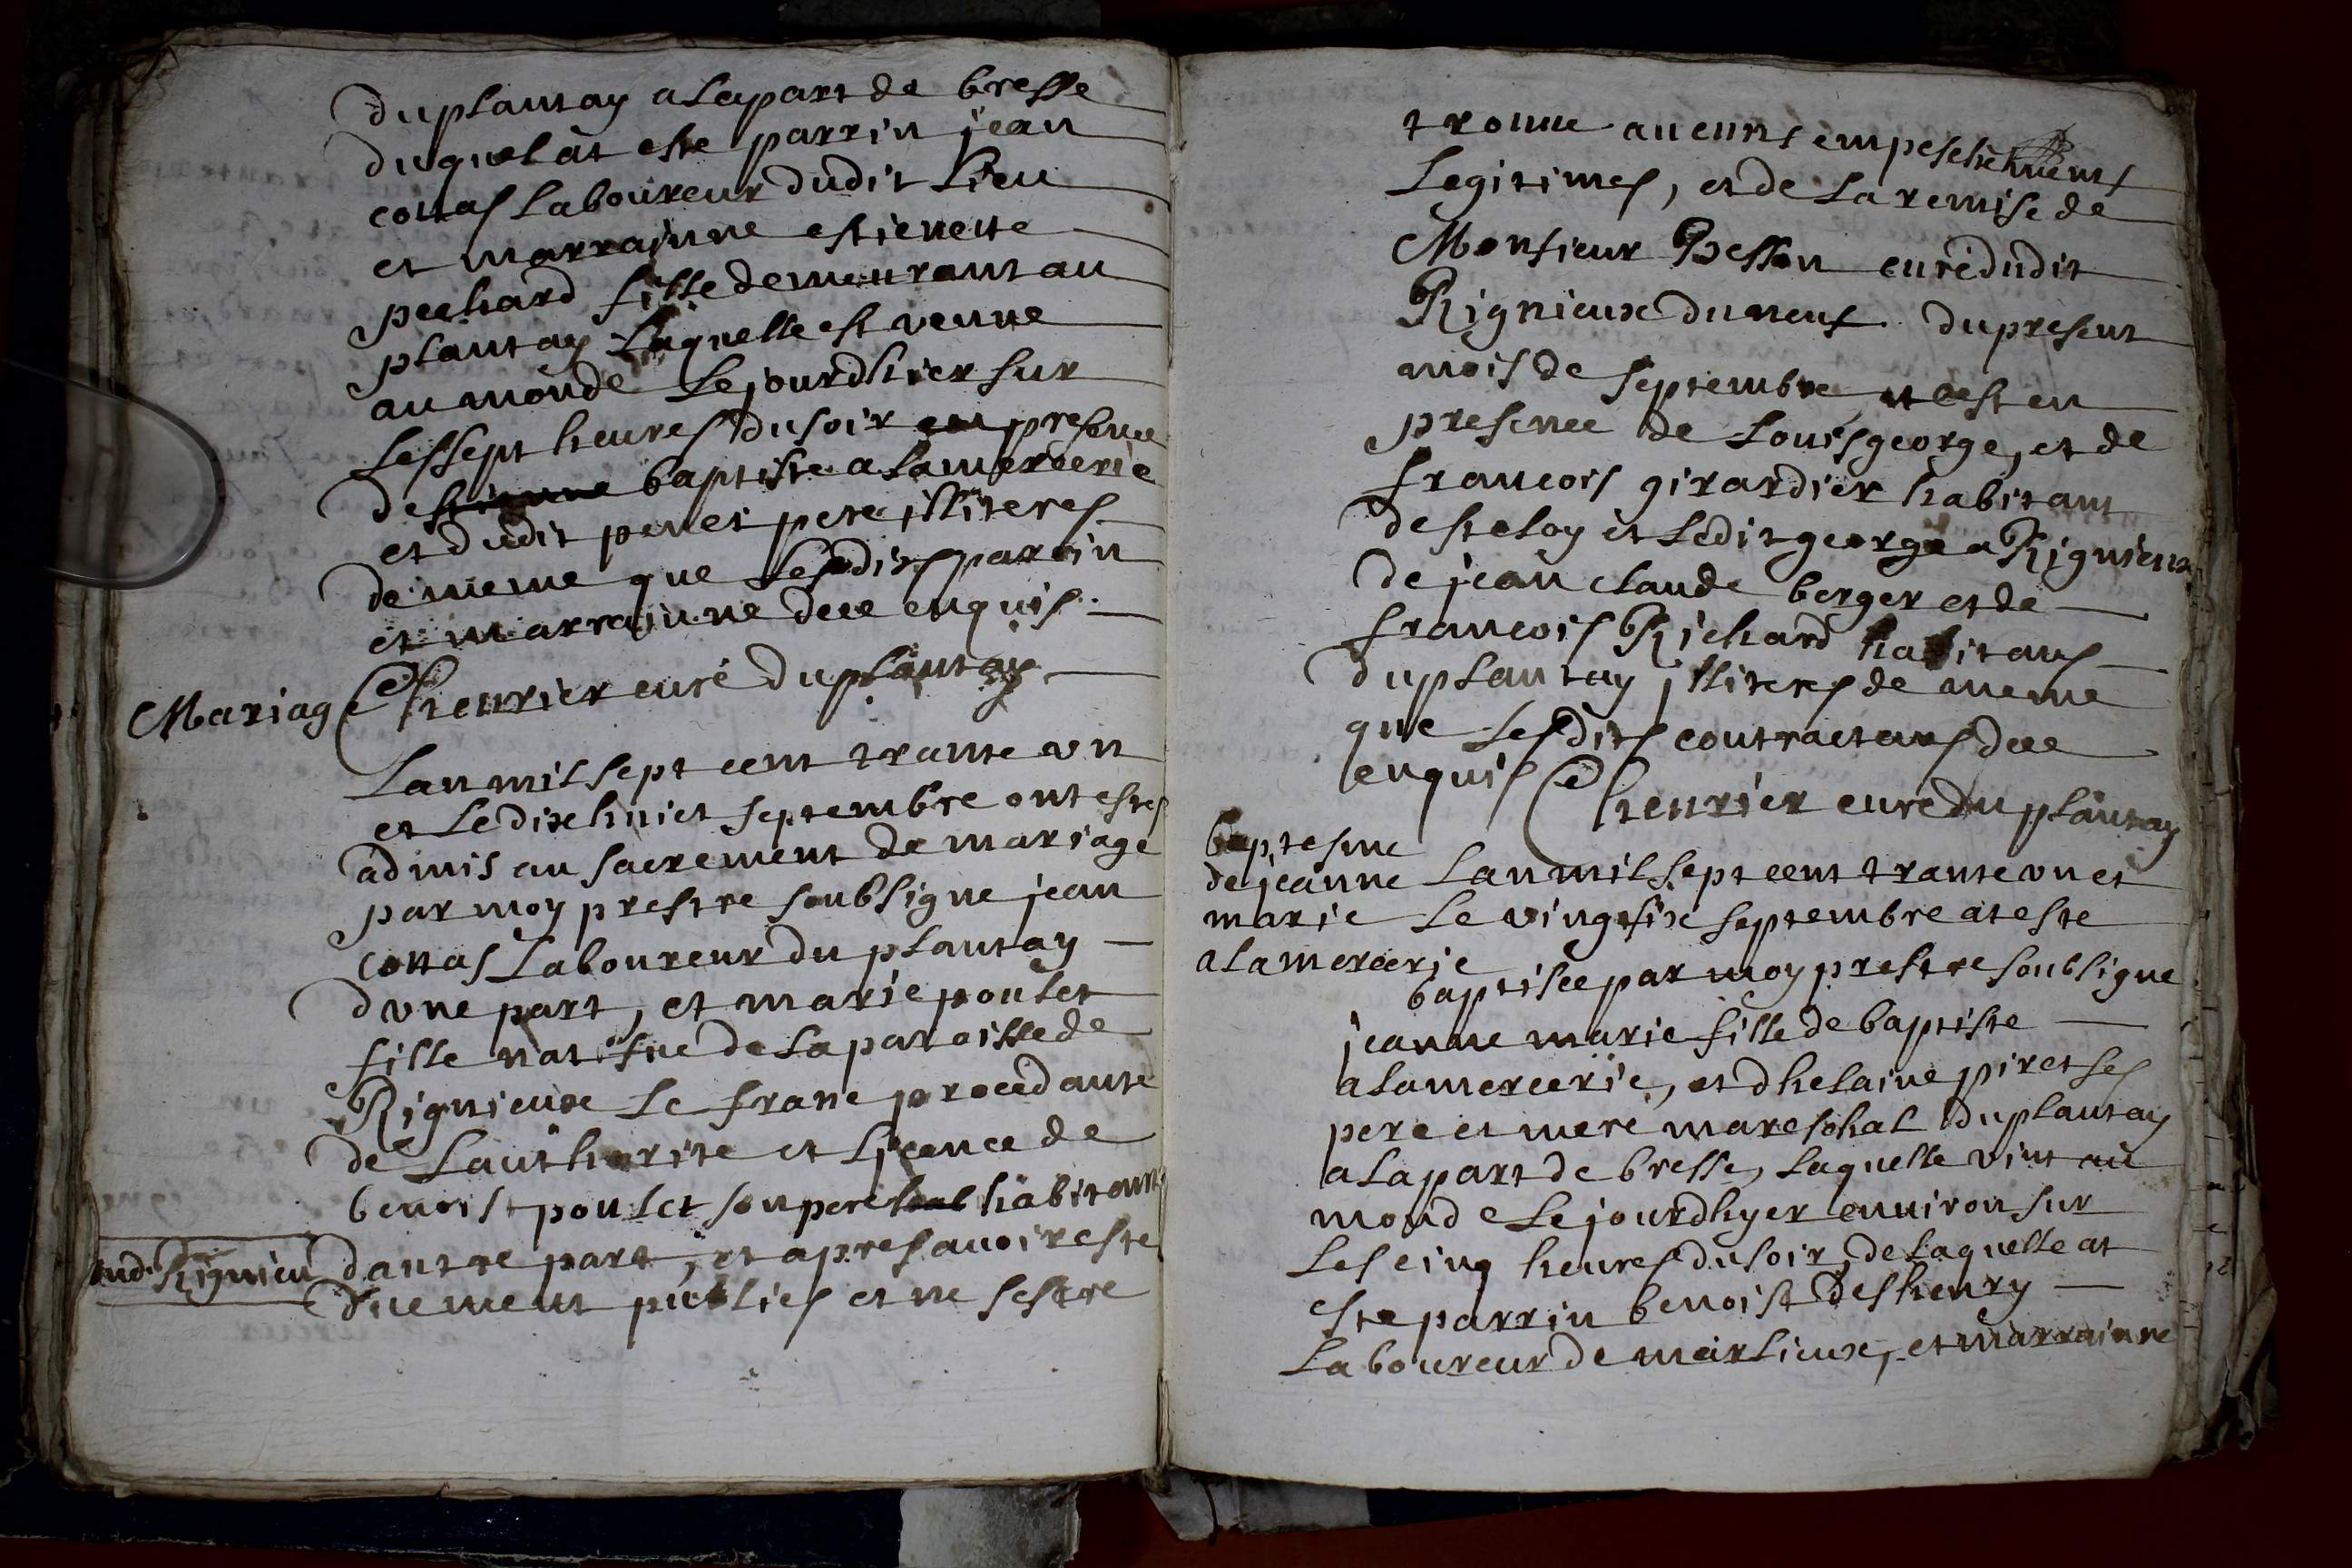 duplantay alapart de bresse
duquel at este parrin jean
cottas laboureur dudit lieu
et marrainne estienette
pechard fille demeurant au
plantay laquelle est venue
au monde le jourdhier sur
les sept heures du soir en presence
baptiste alamercerie
et dudit pere illiteres
de meme que lesdits parrin
et marrainne de ce enquis
Mariage
Cheurier curé duplantay
Lan mil sept cent trante un
et le dixhuict septembre ont estes
admis au sacrement de mariage
par moy prestre soubsigne jean
cottas laboureur du plantay
dune part, et marie poulet
fille natifue de la paroisse de
Rignieux le franc procedante
de lauthorite et licence de
benoist poulet son pere habitant
aud. Rignieu
dautre part, et apres auoir este
duement publies et ne sestre
troune aucuns empeschements
legitimes, et de la remise de
Monsieur Besson curé dudit
Rignieux du neuf du present
mois de septembre et cest en
presence de Louis george, et de
francois girardier habitant
de st eloy et ledit george a Rignieux
de jean claude berger et de
francois Richard habitans
duplantay illiteres de meme
que lesdits contractans de ce
enquis Cheurier curé du plantay
baptesme
de jeanne
marie
alamercerie
Lan mil sept cent trante un et
le vingtsix septembre at este
baptisée par moy prestre soubsigne
jeanne marie fille de baptiste
alamercerie, et dhelaine piret ses
pere et mere mareschal duplantay
alapart de bresse, laquelle vint au
monde le jourdhyer enuiron sur
les cinq heures du soir, de laquelle at
este parrin benoist deshenry
laboureur de marlieux, et marrainne